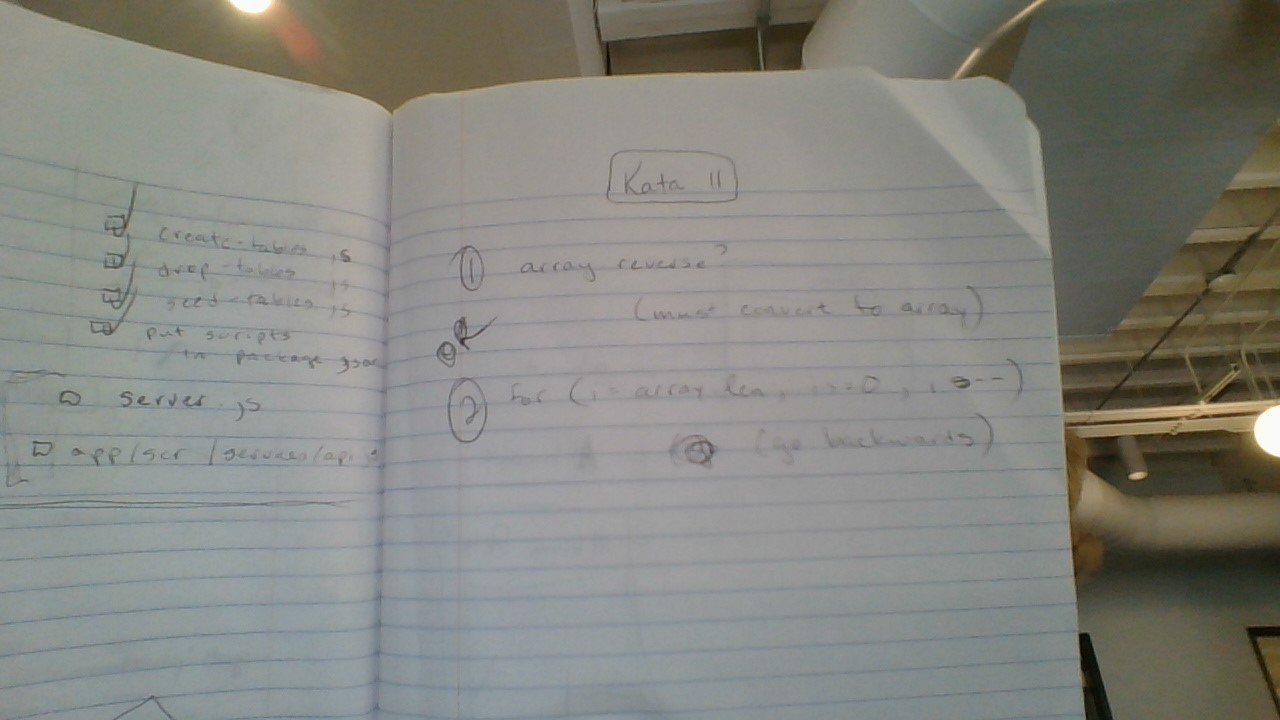 create-tables .js
drop-tables .js
seed-tables .js
put scripts
in package json
server .js
app/scr /services/api .js
Kata 11
1 array reverse?
(must convert to array)
or
2 for (i = array len, i>=0, i--)
(go backwards)